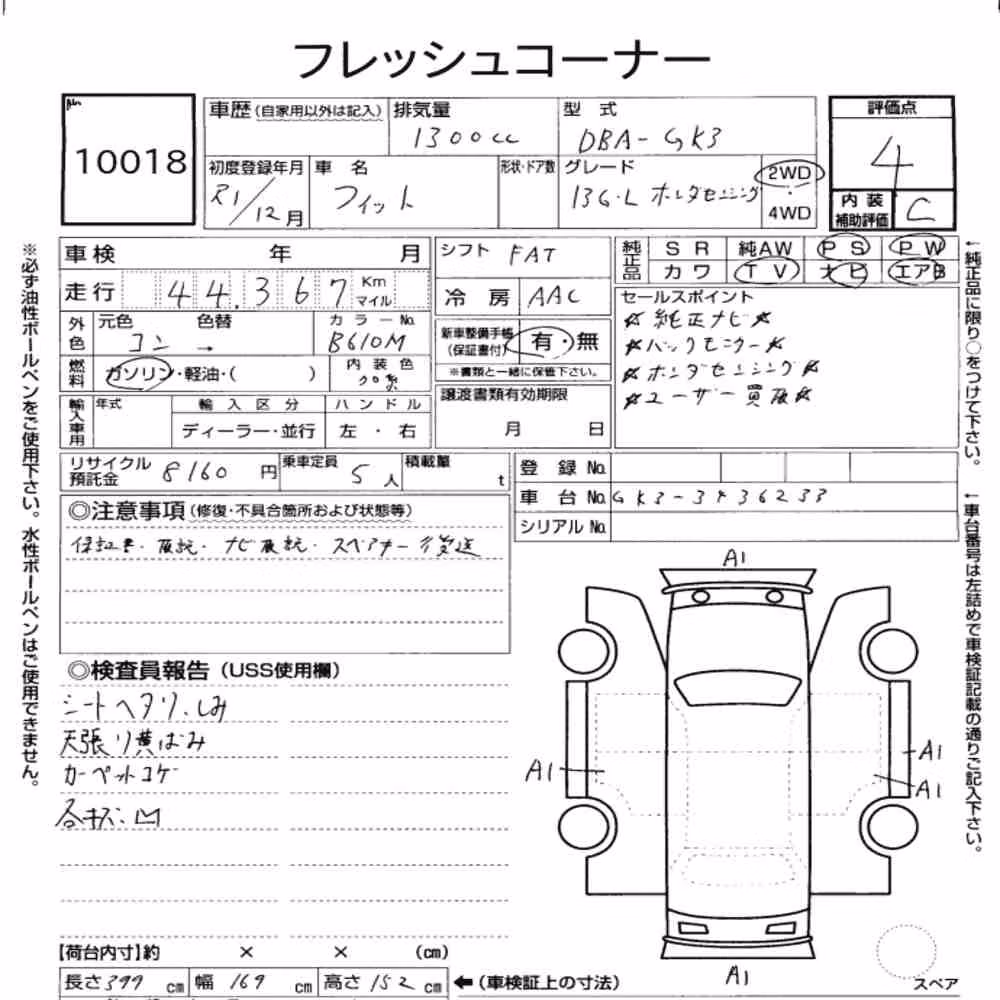 フレッシュコーナー
No.
10018
車歴(自家用以外は記入)
排気量
1300cc
型式
DBA-GK3
評価点
4
初度登録年月
R1/12月
車名
フィット
形状・ドア数
グレード
13G・L ホンダセンシング
2WD
・
4WD
内装
補助評価
C
車検 年 月
シフト FAT
純正品
SR 純AW PS PW
カワ TV ナビ エアB
走行 44,367 Km
マイル
冷房 AAC
セールスポイント
☆純正ナビ☆
☆バックモニター☆
☆ホンダセンシング☆
☆ユーザー買取☆
外色
元色 色替
コン →
カラーNo.
B610M
新車整備手帳
(保証書付)
有・無
※書類と一緒に保管下さい。
燃料
ガソリン・軽油・( )
内装色
クロ系
譲渡書類有効期限
月 日
輸入車用
年式
輸入区分
ハンドル
ディーラー・並行
左・右
リサイクル
預託金
8160円
乗車定員
5人
積載量
t
登録No.
車台No. GK3-3436233
シリアルNo.
◎注意事項(修復・不具合箇所および状態等)
保証書・取説・ナビ取説・スペアキー後送
◎検査員報告(USS使用欄)
シートヘタリ、しみ
天張り黄ばみ
カーペットコゲ
各キズ・凹
A1
A1
A1
A1
A1
【荷台内寸】約 × × (cm)
長さ399cm 幅169cm 高さ152cm
←(車検証上の寸法)
スペア
※必ず油性ボールペンをご使用下さい。水性ボールペンはご使用できません。
←純正品に限り○をつけて下さい。
←車台番号は左詰めで車検証記載の通りご記入下さい。